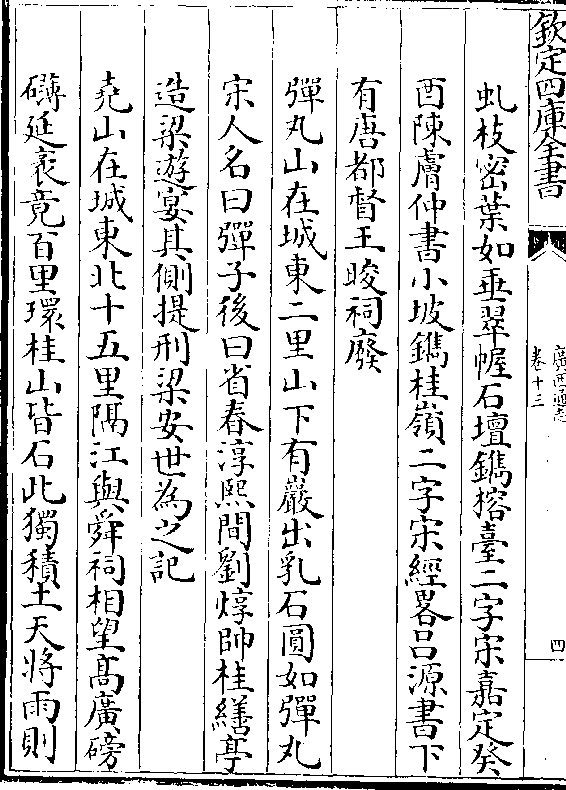 欽定四庫全書
廣西通志
卷十三
四
虬枝密葉如垂翠幄石壇鐫榕臺二字宋嘉定癸
酉陳膚仲書小坡鐫桂嶺二字宋經畧吕源書下
有唐都督王晙祠廢
彈丸山在城東二里山下有巖出乳石圓如彈丸
宋人名曰彈子後曰省春淳熙間劉焞帥桂繕亭
造梁遊宴其側提刑梁安世為之記
堯山在城東北十五里隔江與舜祠相望髙廣磅
礴延袤竟百里環桂山皆石此獨積土天将雨則